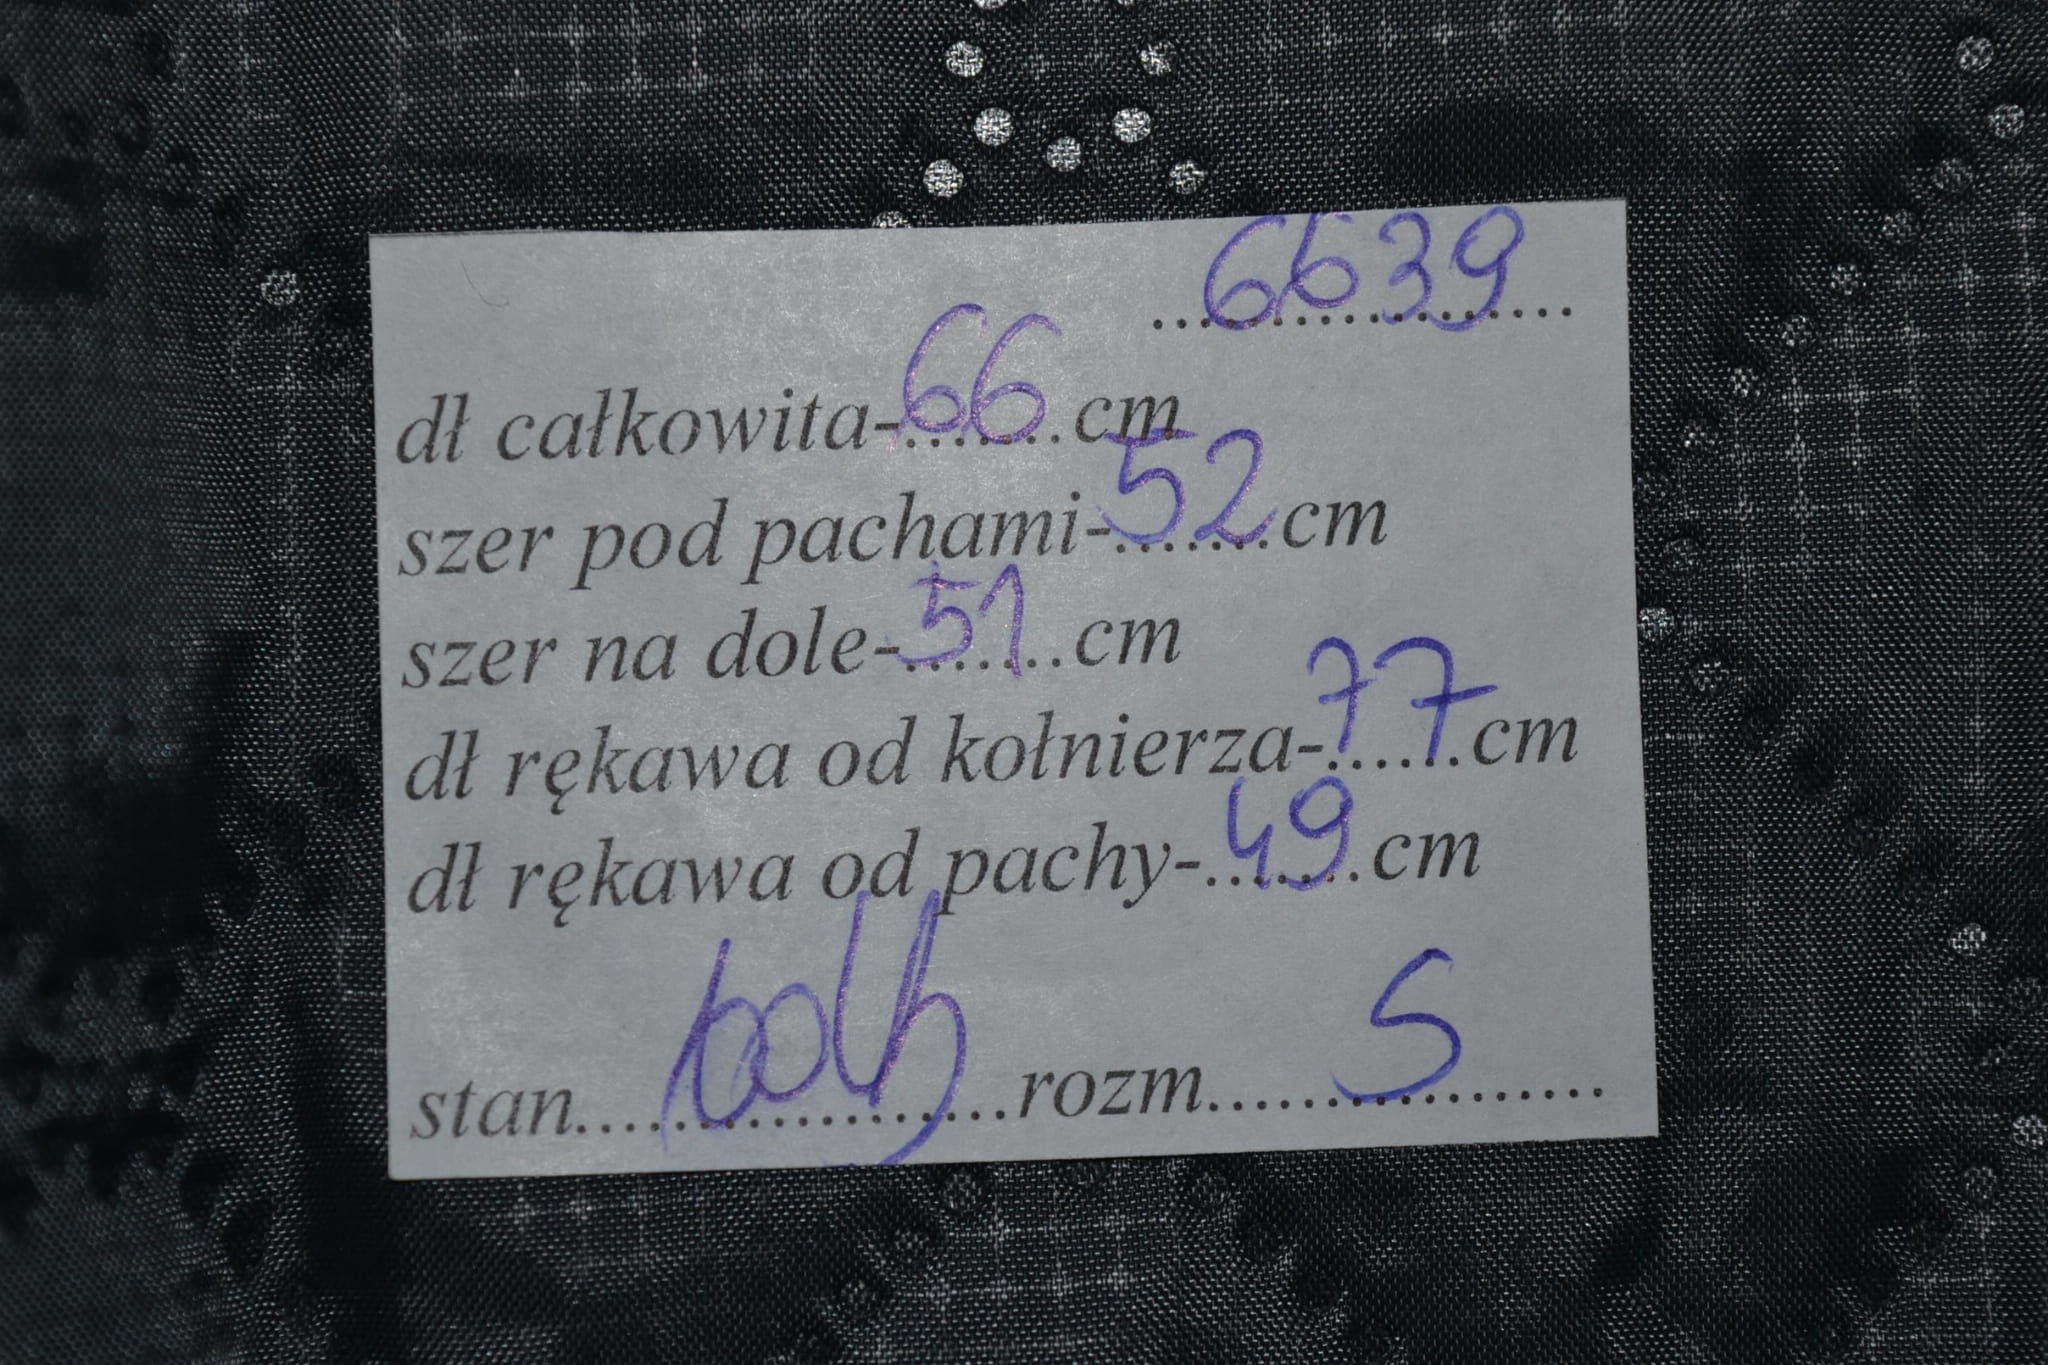 6639
dł całkowita-66cm
szer pod pachami-52cm
szer na dole-51cm
dł rękawa od kołnierza-77cm
dł rękawa od pachy-49cm
stan.................rozm....S............